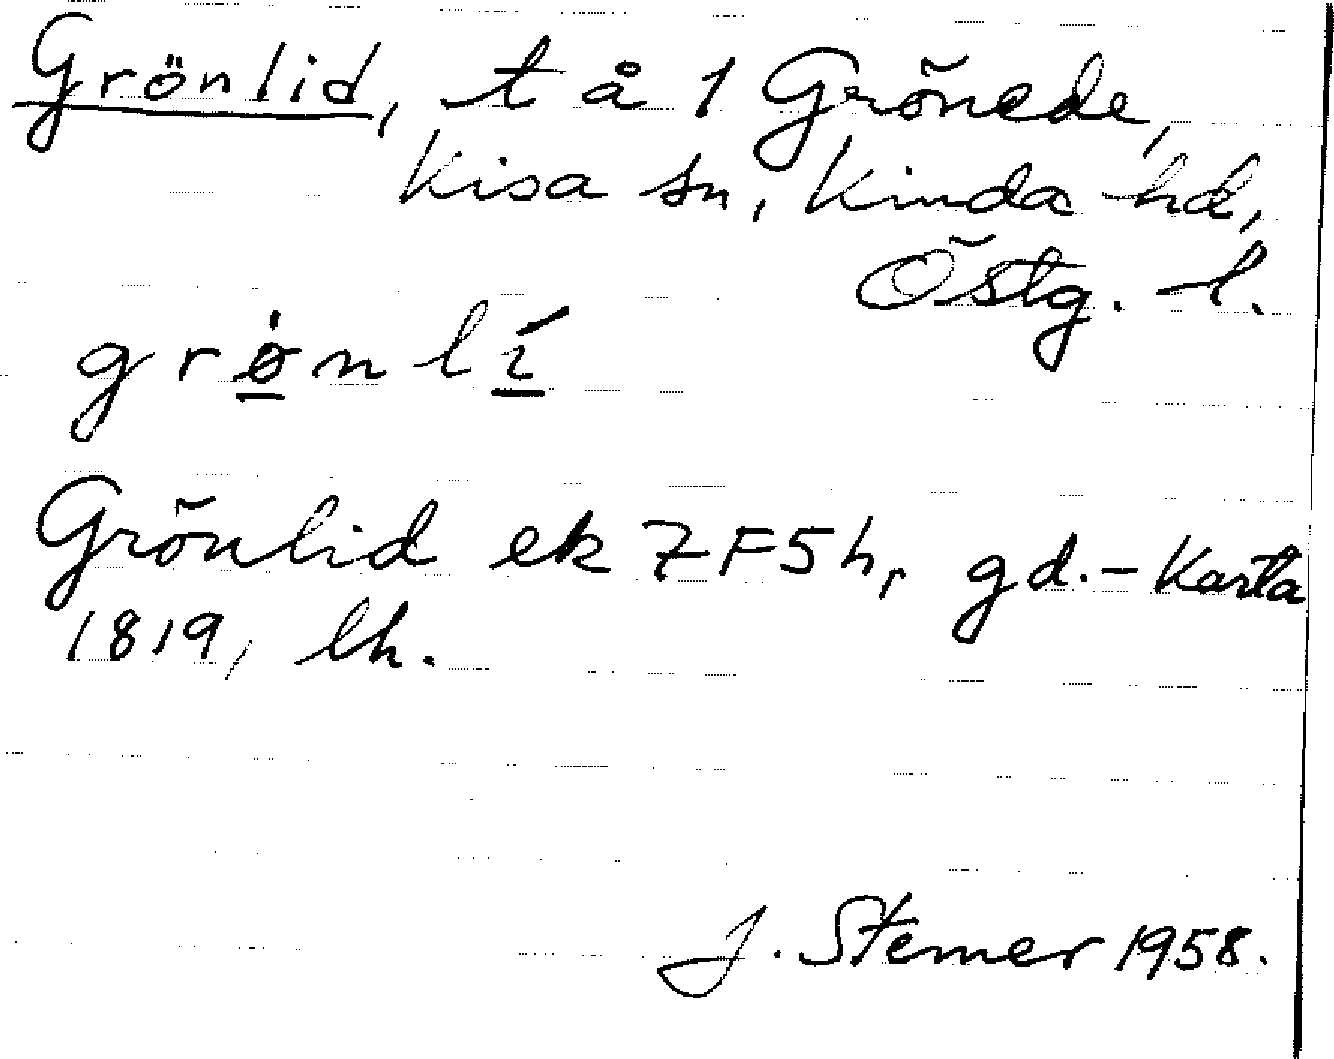 Grönlid, t å 1 Grönede,
Kisa sn, Kinda hd,
Östg. l.
grø̀nlí
Grönlid ek 7F5h, gd. - Karta
1819, lh.
J. Stemer 1958.